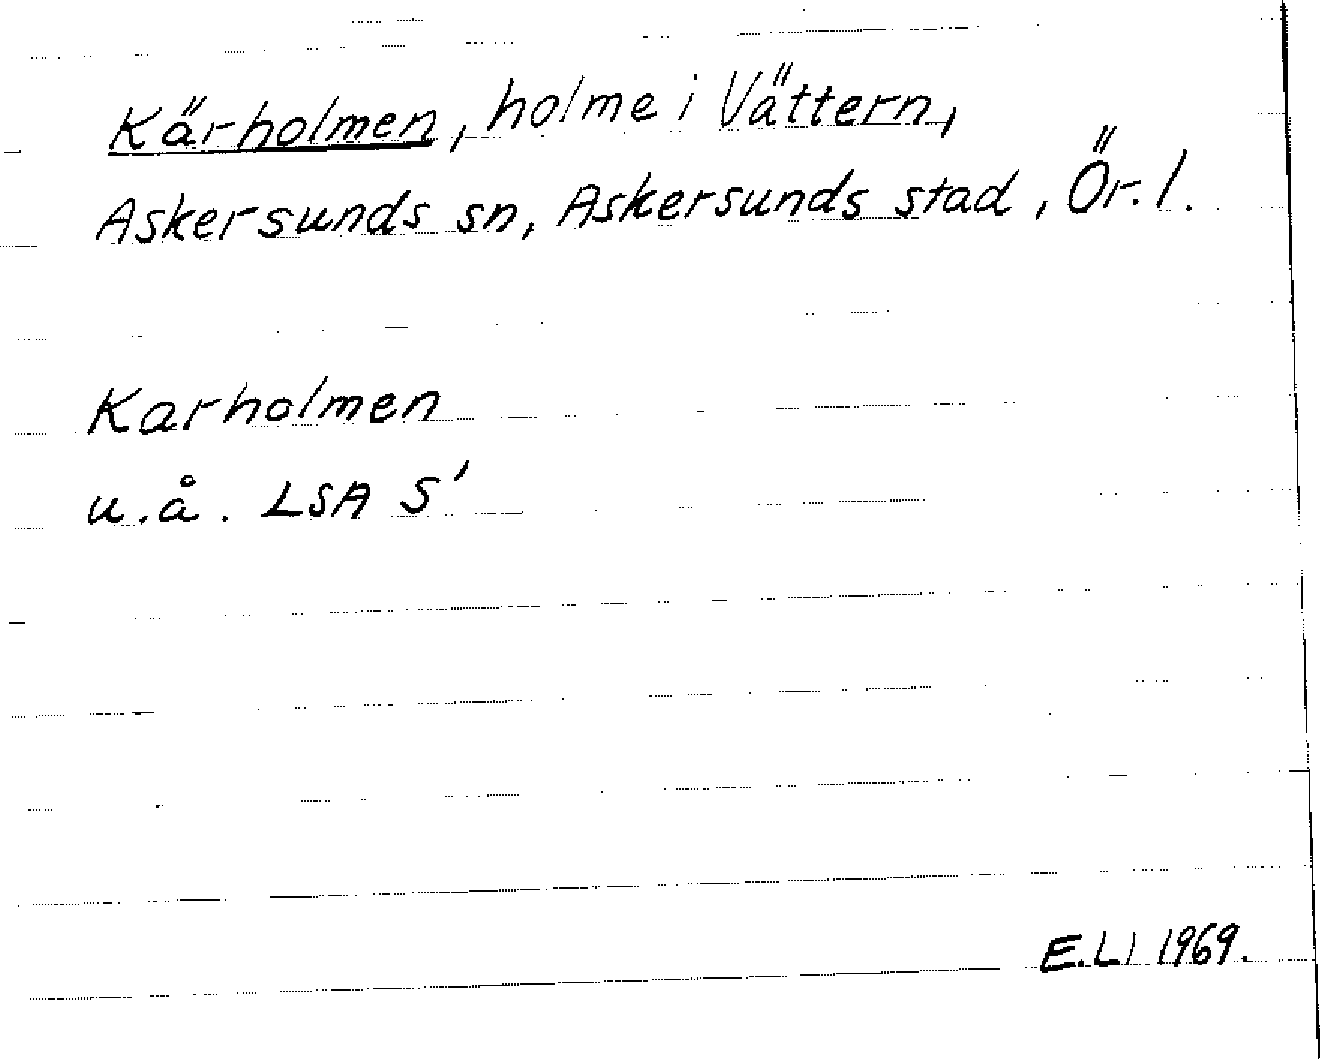 Kärholmen, holme i Vättern,
Askersunds sn, Askersunds stad, Ör. l.
Karholmen
u. å. LSA S'
E. Ll 1969.